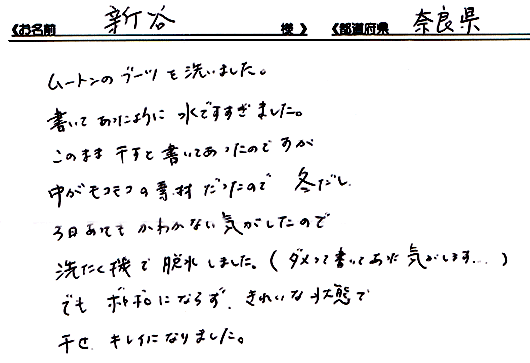 《お名前 新谷 様》 《都道府県 奈良県
ムートンのブーツを洗いました。
書いてあったように水ですすぎました。
このまま干すと書いてあったのですが
中がモコモコの素材だったので 冬だし、
3日あってもかわかない気がしたので
洗たく機で脱水しました。(ダメって書いてあった気がします…)
でもボロボロにならず、きれいな状態で
干せ、キレイになりました。